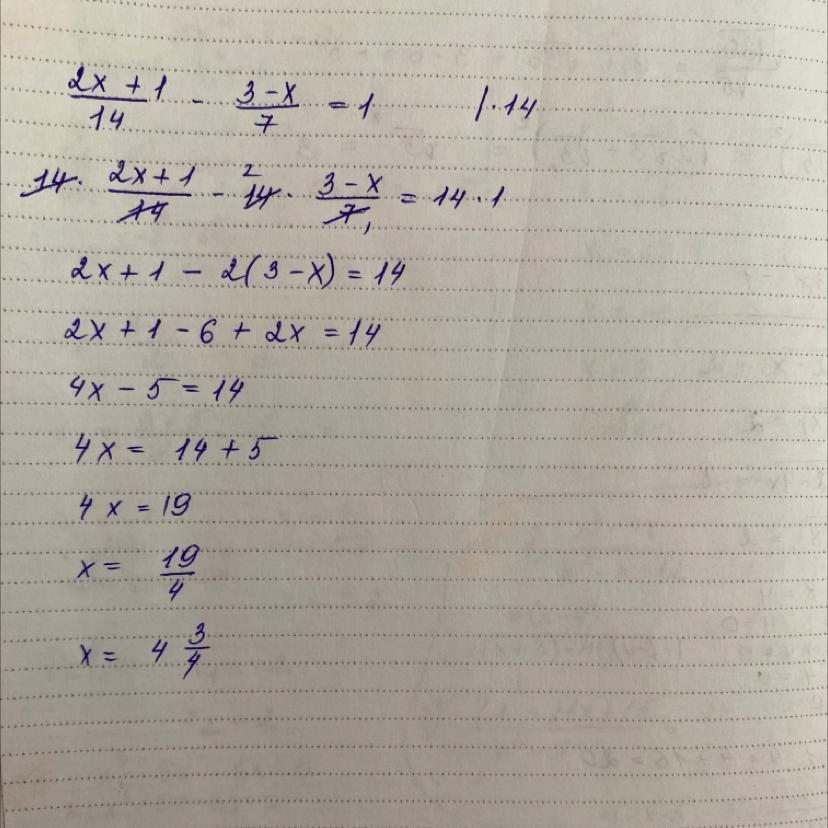 (2x + 1)/14 - (3 - x)/7 = 1 | · 14
14 · (2x + 1)/14 - 14² · (3 - x)/7₁ = 14 · 1
2x + 1 - 2(3 - x) = 14
2x + 1 - 6 + 2x = 14
4x - 5 = 14
4x = 14 + 5
4x = 19
x = 19/4
x = 4 3/4